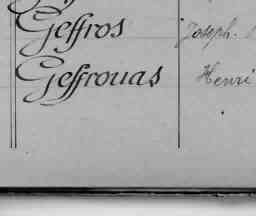 Geffros Joseph.
Geffrouas Henri